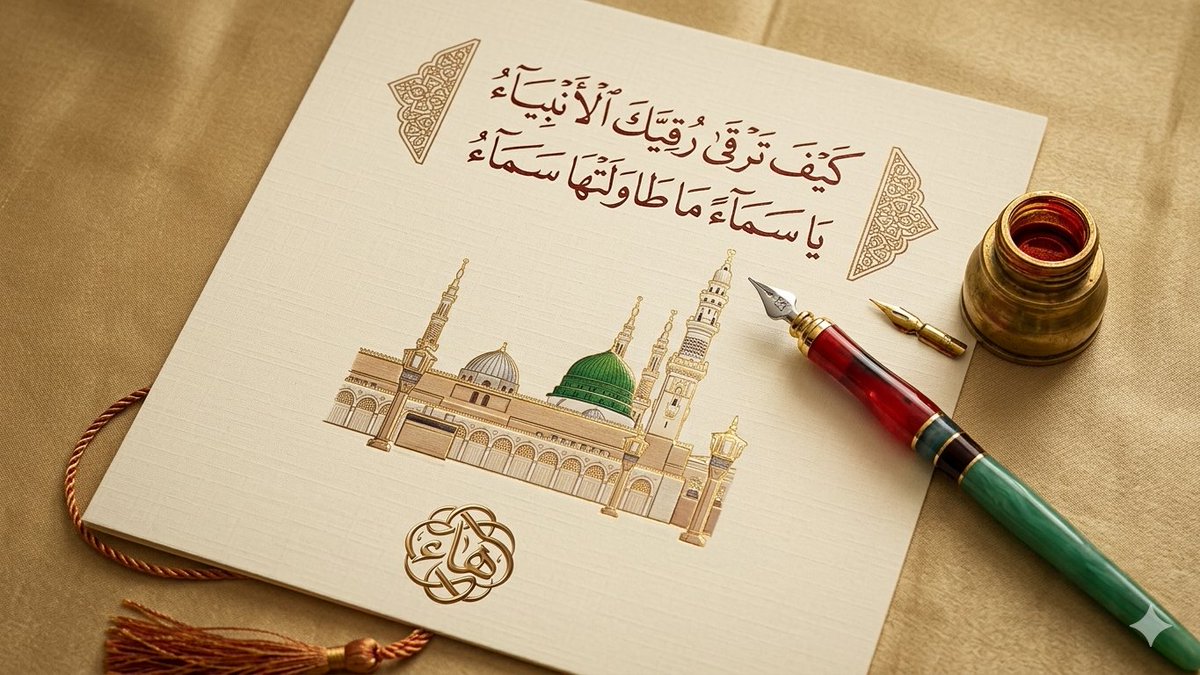 كَيْفَ تَرْقَىٰ رُقِيَّكَ ٱلْأَنْبِيَآءُ
يَا سَمَآءً مَا طَاوَلَتْهَا سَمَآءُ